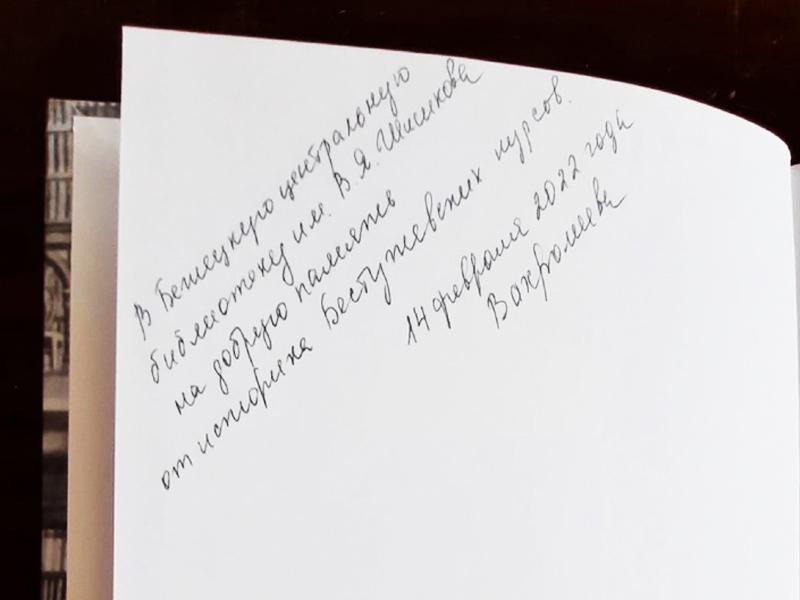 В Бежецкую центральную
библиотеку им. В. Я. Шишкова
на добрую память
от историка Бестужевских курсов.
14 февраля 2022 года
Вахромеева